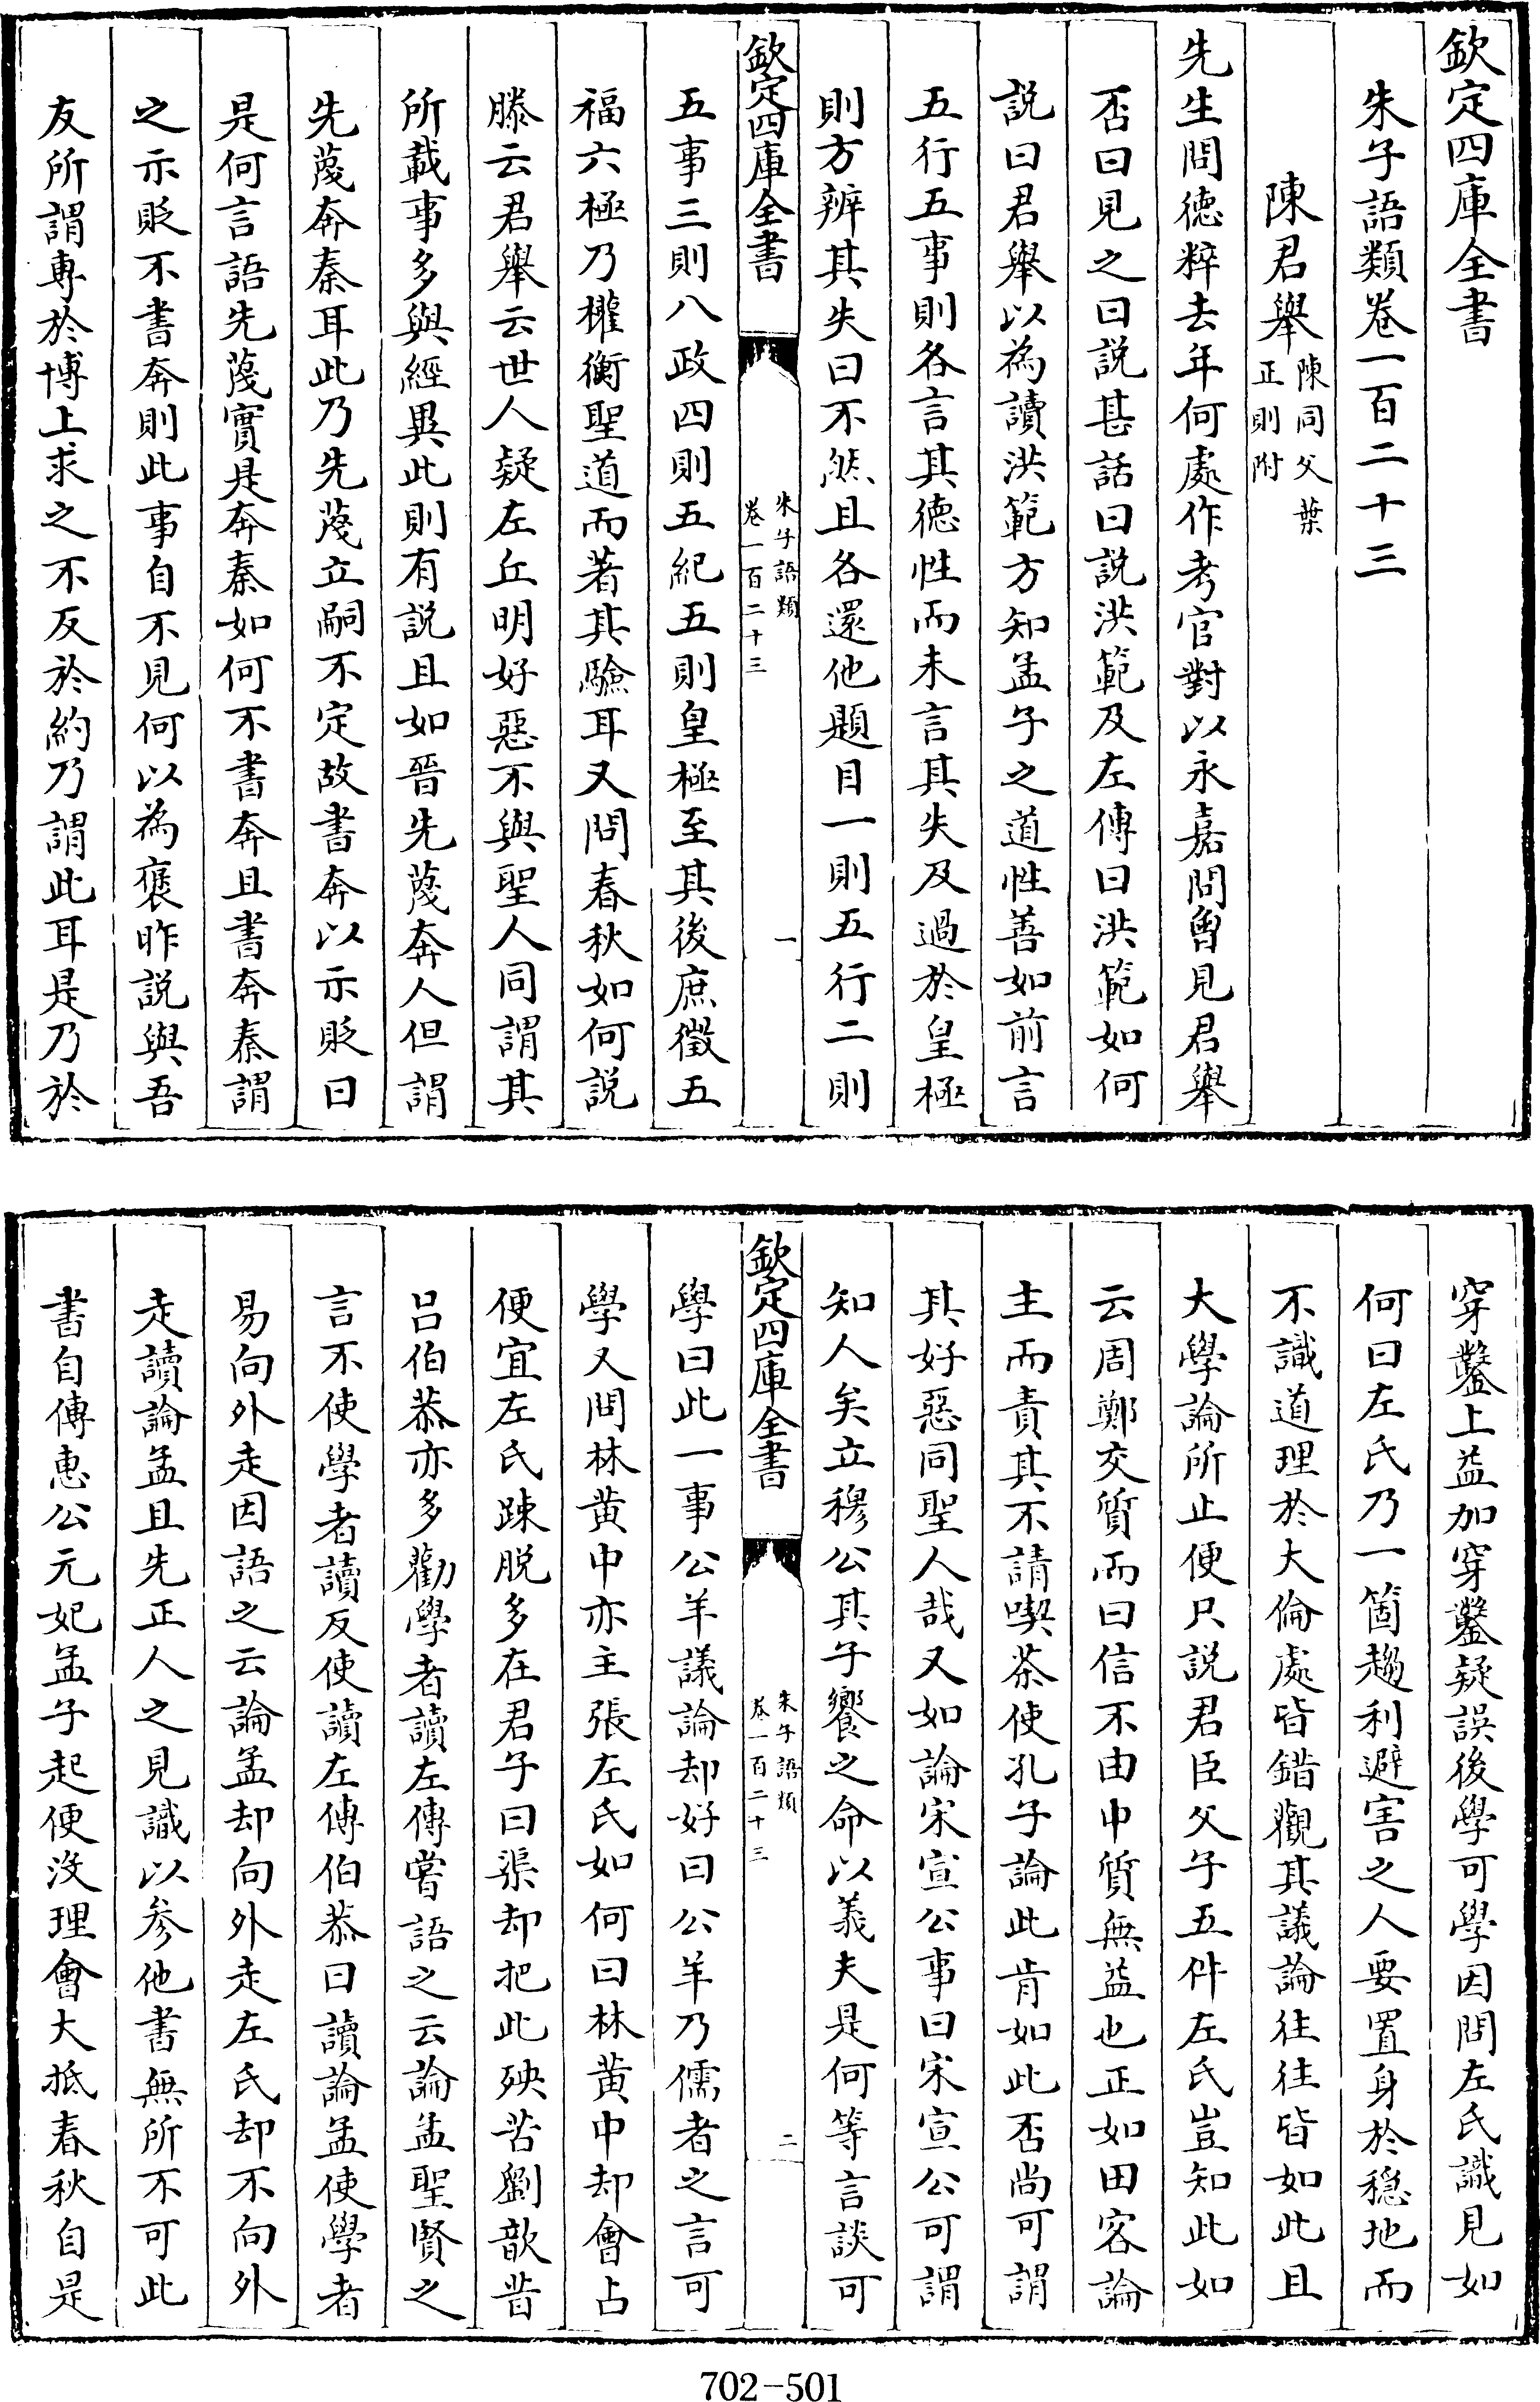 欽定四庫全書
朱子語類卷一百二十三
陳君舉
陳同父葉
正則附
先生問德粹去年何處作考官對以永嘉問曽見君舉
否曰見之曰説甚話曰説洪範及左傳曰洪範如何
説曰君舉以為讀洪範方知孟子之道性善如前言
五行五事則各言其德性而未言其失及過於皇極
則方辨其失曰不然且各還他題目一則五行二則
欽定四庫全書
朱子語類
卷一百二十三
一
五事三則八政四則五紀五則皇極至其後庶徵五
福六極乃權衡聖道而著其驗耳又問春秋如何説
滕云君舉云世人疑左丘明好惡不與聖人同謂其
所載事多與經異此則有説且如晉先蔑奔人但謂
先蔑奔秦耳此乃先蔑立嗣不定故書奔以示貶曰
是何言語先蔑實是奔秦如何不書奔且書奔秦謂
之示貶不書奔則此事自不見何以為褒昨説與吾
友所謂專於博上求之不反於約乃謂此耳是乃於
穿鑿上益加穿鑿疑誤後學可學因問左氏識見如
何曰左氏乃一箇趨利避害之人要置身於穩地而
不識道理於大倫處皆錯觀其議論往往皆如此且
大學論所止便只説君臣父子五件左氏豈知此如
云周鄭交質而曰信不由中質無益也正如田客論
主而責其不請喫茶使孔子論此肯如此否尚可謂
其好惡同聖人哉又如論宋宣公事曰宋宣公可謂
知人矣立穆公其子饗之命以義夫是何等言談可
欽定四庫全書
朱子語類
卷一百二十三
二
學曰此一事公羊議論却好曰公羊乃儒者之言可
學又問林黄中亦主張左氏如何曰林黄中却會占
便宜左氏踈脱多在君子曰渠却把此殃苦劉歆昔
吕伯恭亦多勸學者讀左傳嘗語之云論孟聖賢之
言不使學者讀反使讀左傳伯恭曰讀論孟使學者
易向外走因語之云論孟却向外走左氏却不向外
走讀論孟且先正人之見識以参他書無所不可此
書自傳惠公元妃孟子起便没理會大抵春秋自是
702-501